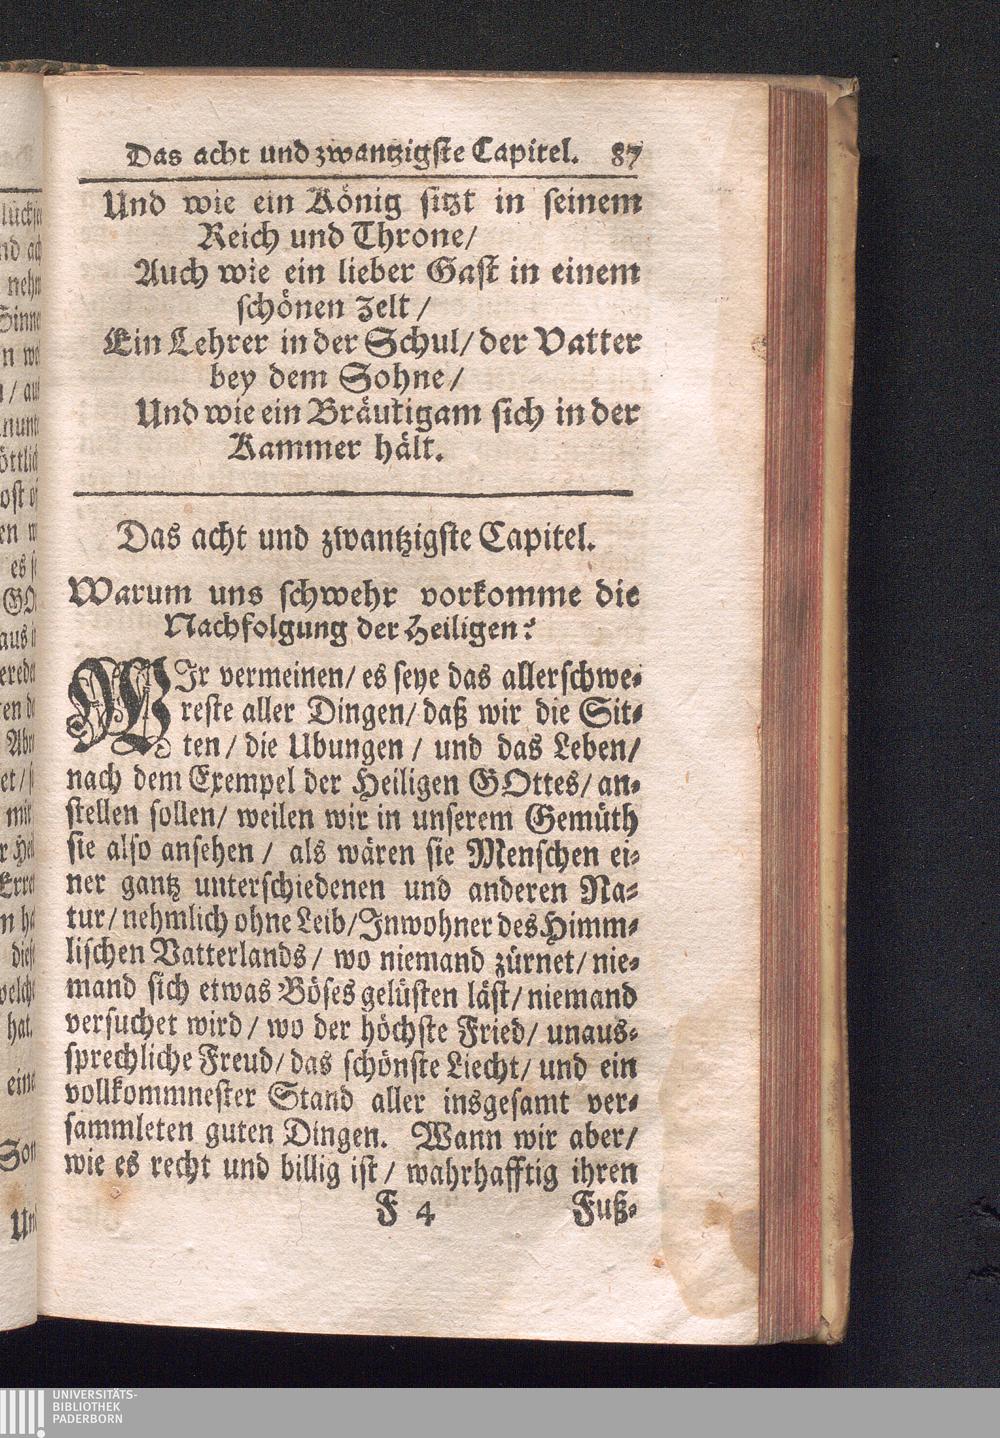 Das acht und zwantzigste Capitel. 87
Und wie ein König sitzt in seinem
Reich und Throne/
Auch wie ein lieber Gast in einem
schönen Zelt/
Ein Lehrer in der Schul/ der Vatter
bey dem Sohne/
Und wie ein Bräutigam sich in der
Kammer hält.
Das acht und zwantzigste Capitel.
Warum uns schwehr vorkomme die
Nachfolgung der Heiligen?
WIr vermeinen/ es seye das allerschwe-
reste aller Dingen/ daß wir die Sit-
ten/ die Ubungen/ und das Leben/
nach dem Exempel der Heiligen GOttes/ an-
stellen sollen/ weilen wir in unserem Gemüth
sie also ansehen/ als wären sie Menschen ei-
ner gantz unterschiedenen und anderen Na-
tur/ nehmlich ohne Leib/ Inwohner des Himm-
lischen Vatterlands/ wo niemand zürnet/ nie-
mand sich etwas Böses gelüsten läst/ niemand
versuchet wird/ wo der höchste Fried/ unaus-
sprechliche Freud/ das schönste Liecht/ und ein
vollkommnester Stand aller insgesamt ver-
sammleten guten Dingen. Wann wir aber/
wie es recht und billig ist/ wahrhafftig ihren
F 4 Fuß-
UNIVERSITÄTS-
BIBLIOTHEK
PADERBORN